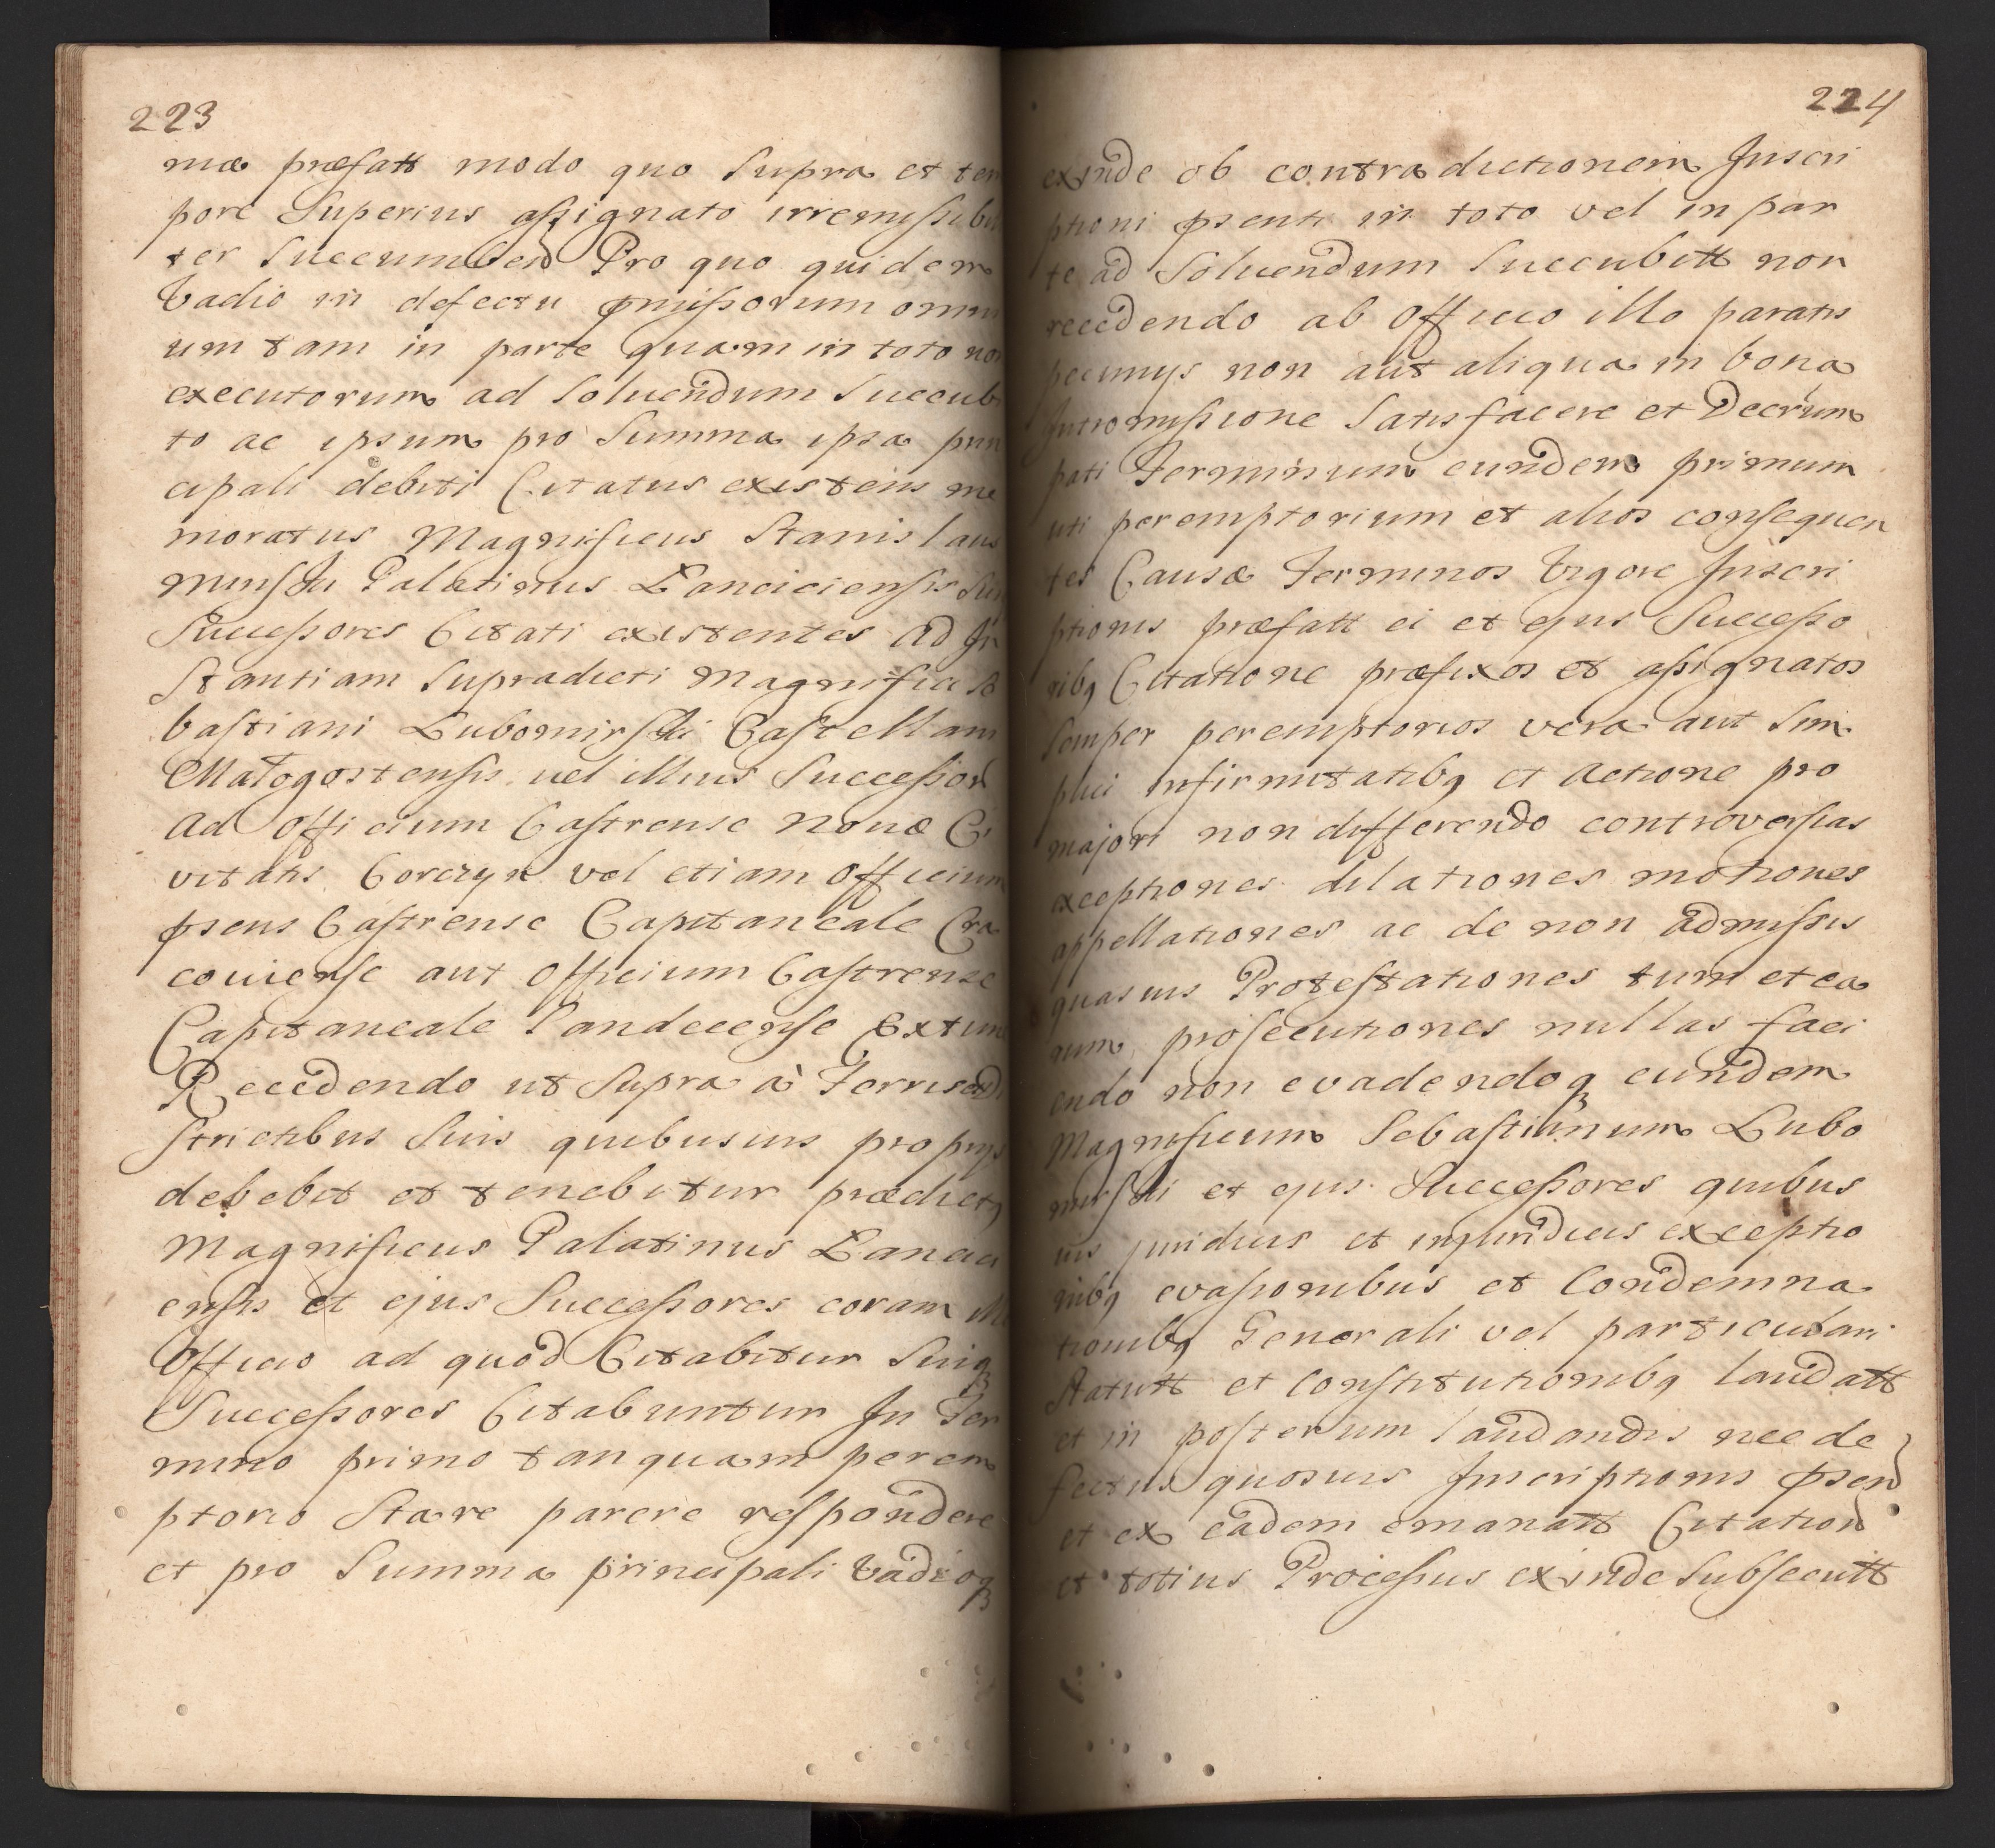 223
mæ præfatt modo quo Supra et tem
pore Superius assignato irremissibili
ter Succumbend Pro quo quidem
Vadio in defectu pmissorum omni
um tam in parte quam in toto non
executorum ad Soluendum Succubi
to ac ipsum pro Summa ipsa prin
cipali debiti Citatus existens me
moratus Magnificus Stanislaus
Minski Palatinus Lanciciensis Sui
Successores Citati existentes ad In
Stantiam Supradicti Magnifici Se
bastiani Lubomirski Castellani
Małogostensis uel illius Successor
ad Officium Castrense Nouæ Ci
vitatis Corczyn vel etiam Officium
psens Castrense Capitaneale Cra
couiense aut Officium Castrense
Capitaneale Sandecense Extunc
Recedendo ut Supra à Terris
Strictibus Suis quibusuis proprys
debebit et tenebitur prædictq
Magnificus Palatinus Lancici
ensis et ejus Successores coram
Officio ad quod Citabitur Suiq
Successores Citabuntur In Ter
mino primo tanquam perem
ptorio Stare parere respondere
et pro Summa principali Vadioq
224
exinde ob contradictionem Inscri
ptioni psenti in toto vel in par
te ad Soluendum Succubitt non
recedendo ab Officio illo paratis
pecunys non aut aliqua in bona
Intromissione Satisfacere et Decrum
pati Terminum eundem primum
uti peremptorium et alios consequen
tes Causæ Terminos Vigore Inscri
ptionis præfatt ei et ejus Successo
ribq Citatione præfixos et assignatos
Semper peremptorios vera aut Sim
plici infirmitatibq et actione pro
majori non differendo controversias
exceptiones dilationes motiones
appellationes ac de non admissis
quasuis Protestationes tum et ea
rum prosecutiones nullas faci
endo non evadendoq eundem
Magnificum Sebastianum Lubo
mirski et ejus Successores quibus
uis juridicis et injuridicis exceptio
nibq evasionibus et Condemna
tionibq Generali vel particulari
Statutt et Constitutionibq laudatt
et in posterum laudandis nec de
fectus quosuis Inscriptionis psen
et ex eadem emanatt Citation
et totius Processus exinde Subsecutt